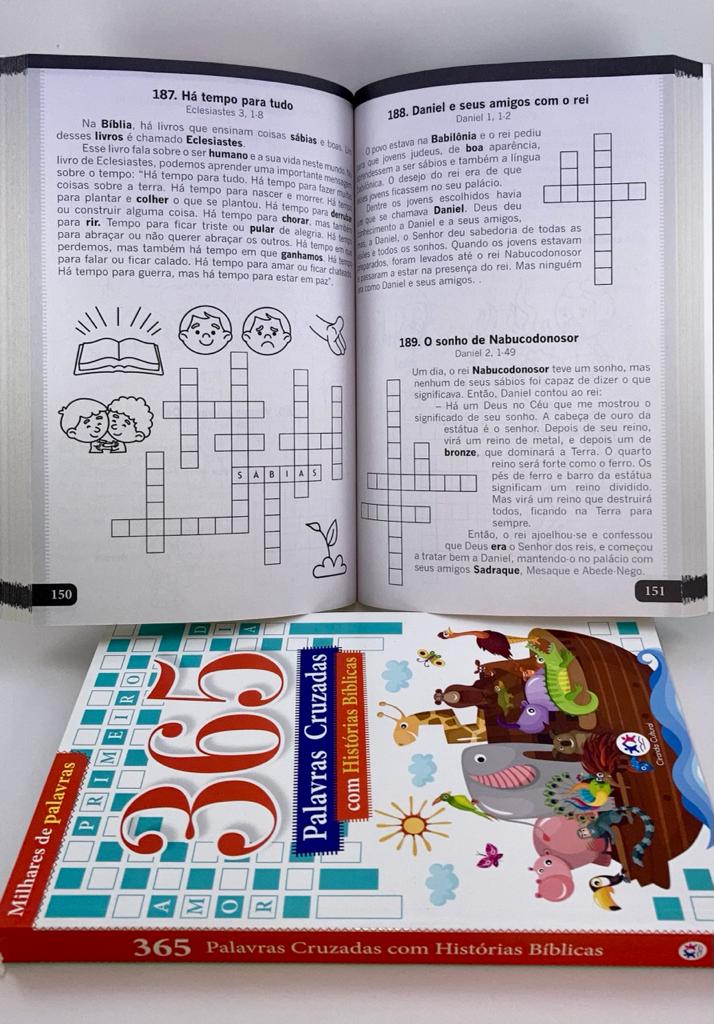 187. Há tempo para tudo
Eclesiastes 3, 1-8
Na Bíblia, há livros que ensinam coisas sábias e boas. Um
desses livros é chamado Eclesiastes.
Esse livro fala sobre o ser humano e a sua vida neste mundo.
livro de Eclesiastes, podemos aprender uma importante mensagem
sobre o tempo: "Há tempo para tudo. Há tempo para fazer muitas
coisas sobre a terra. Há tempo para nascer e morrer. Há tempo
para plantar e colher o que se plantou. Há tempo para derrubar
ou construir alguma coisa. Há tempo para chorar, mas também
para rir. Tempo para ficar triste ou pular de alegria. Há tempo
para abraçar ou não querer abraçar os outros. Há tempo em que
perdemos, mas também há tempo em que ganhamos. Há tempo
para falar ou ficar calado. Há tempo para amar ou ficar chateado.
Há tempo para guerra, mas há tempo para estar em paz".
SÁBIAS
150
188. Daniel e seus amigos com o rei
Daniel 1, 1-2
O povo estava na Babilônia e o rei pediu
que jovens judeus, de boa aparência,
aprendessem a ser sábios e também a língua
babilônica. O desejo do rei era de que
esses jovens ficassem no seu palácio.
Dentre os jovens escolhidos havia
um que se chamava Daniel. Deus deu
conhecimento a Daniel e a seus amigos,
mas, a Daniel, o Senhor deu sabedoria de todas as
visões e todos os sonhos. Quando os jovens estavam
preparados, foram levados até o rei Nabucodonosor
e passaram a estar na presença do rei. Mas ninguém
era como Daniel e seus amigos. .
189. O sonho de Nabucodonosor
Daniel 2, 1-49
Um dia, o rei Nabucodonosor teve um sonho, mas
nenhum de seus sábios foi capaz de dizer o que
significava. Então, Daniel contou ao rei:
– Há um Deus no Céu que me mostrou o
significado de seu sonho. A cabeça de ouro da
estátua é o senhor. Depois de seu reino,
virá um reino de metal, e depois um de
bronze, que dominará a Terra. O quarto
reino será forte como o ferro. Os
pés de ferro e barro da estátua
significam um reino dividido.
Mas virá um reino que destruirá
todos, ficando na Terra para
sempre.
Então, o rei ajoelhou-se e confessou
que Deus era o Senhor dos reis, e começou
a tratar bem a Daniel, mantendo-o no palácio com
seus amigos Sadraque, Mesaque e Abede-Nego.
151
Milhares de palavras
PRIMEIRO
AMOR
DIA
365
Palavras Cruzadas
com Histórias Bíblicas
Ciranda Cultural
365 Palavras Cruzadas com Histórias Bíblicas